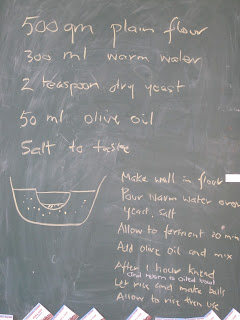 500gm plain flour
300 ml warm water
2 teaspoon dry yeast
50 ml olive oil
Salt to taste
Make well in flour
Pour warm water over
yeast, salt
Allow to ferment 20 min
Add olive oil and mix
After 1 hour knead
and return to oiled bowl
Let rise and make balls
Allow to rise then use